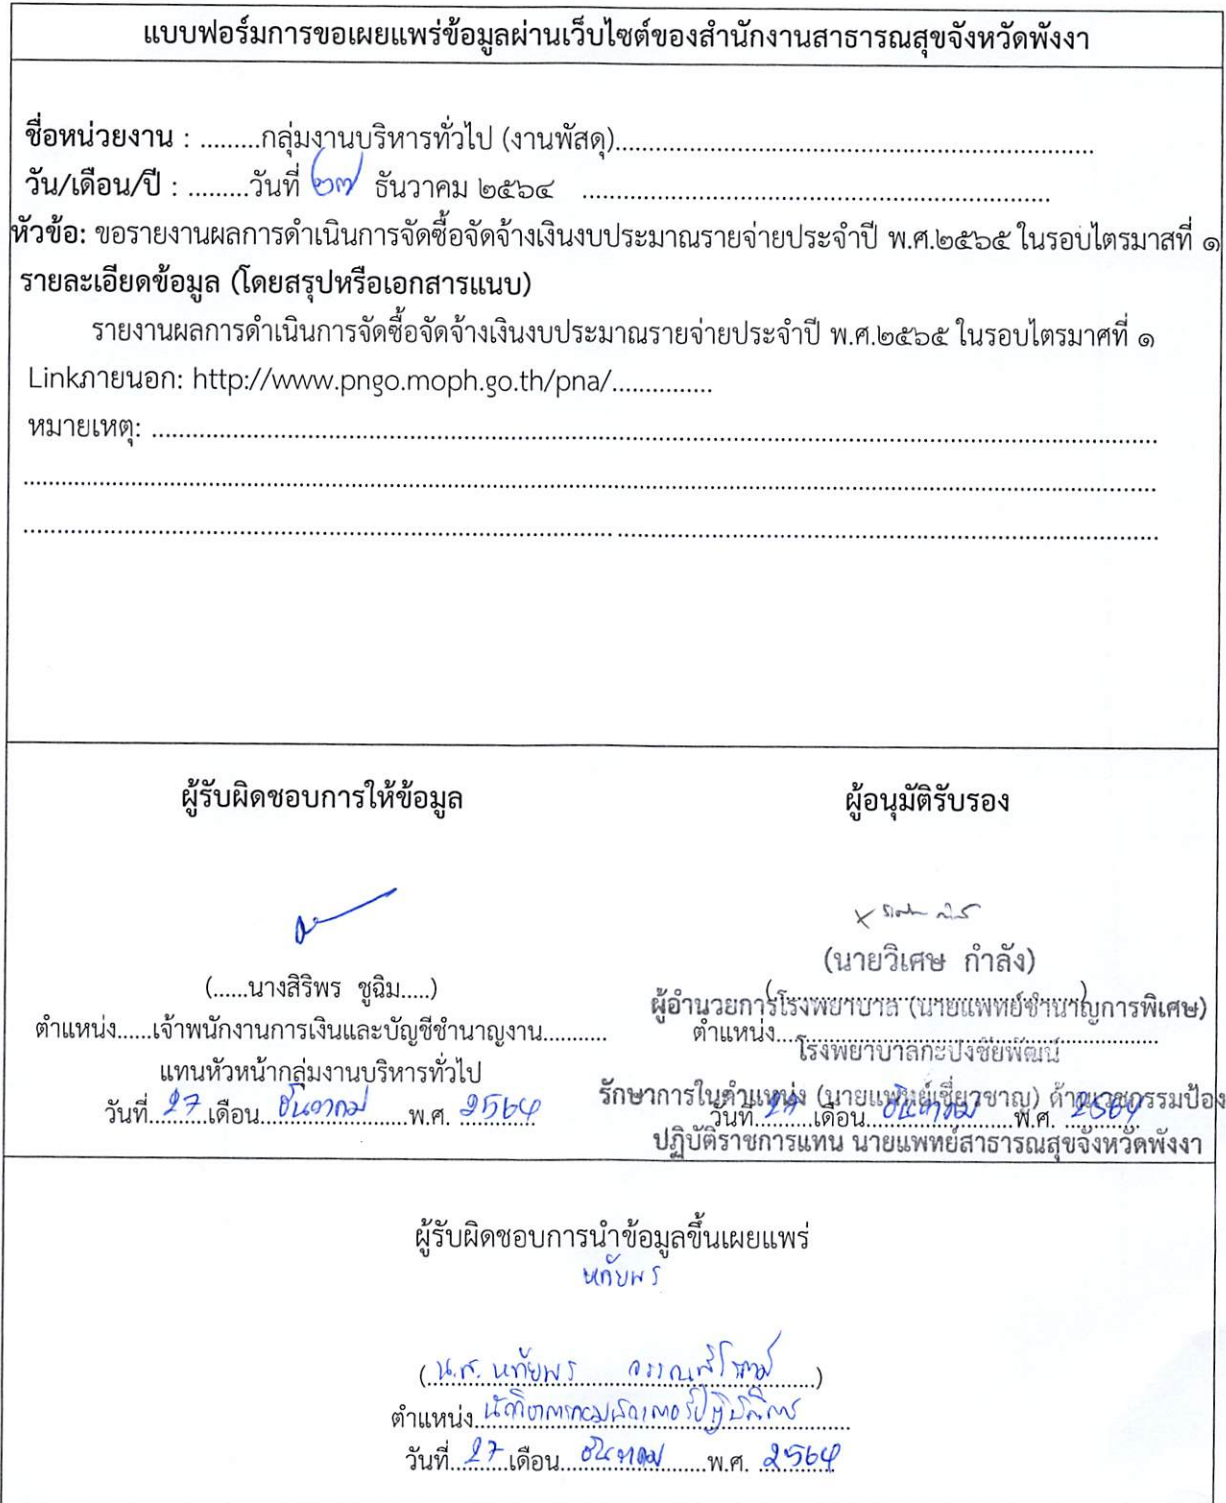 แบบฟอร์มการขอเผยแพร่ข้อมูลผ่านเว็บไซต์ของสำนักงานสาธารณสุขจังหวัดพังงา
ชื่อหน่วยงาน : .........กลุ่มงานบริหารทั่วไป (งานพัสดุ)........................................................................
วัน/เดือน/ปี : .........วันที่ ๒๗ ธันวาคม ๒๕๖๔ ......................................................................
หัวข้อ: ขอรายงานผลการดำเนินการจัดซื้อจัดจ้างเงินงบประมาณรายจ่ายประจำปี พ.ศ.๒๕๖๕ ในรอบไตรมาสที่ ๑
รายละเอียดข้อมูล (โดยสรุปหรือเอกสารแนบ)
รายงานผลการดำเนินการจัดซื้อจัดจ้างเงินงบประมาณรายจ่ายประจำปี พ.ศ.๒๕๖๕ ในรอบไตรมาศที่ ๑
Linkภายนอก: http://www.pngo.moph.go.th/pna/...............
หมายเหตุ: ......................................................................................................................................................
ผู้รับผิดชอบการให้ข้อมูล
ผู้อนุมัติรับรอง
(......นางสิริพร ชูฉิม.....)
ตำแหน่ง......เจ้าพนักงานการเงินและบัญชีชำนาญงาน...........
แทนหัวหน้ากลุ่มงานบริหารทั่วไป
วันที่ 27 เดือน ธันวาคม พ.ศ. 2564
(นายวิเศษ กำลัง)
ผู้อำนวยการโรงพยาบาล (นายแพทย์ชำนาญการพิเศษ)
ตำแหน่ง
โรงพยาบาลกะปงชัยพัฒน์
รักษาการในตำแหน่ง (นายแพทย์เชี่ยวชาญ) ด้านเวชกรรมป้อง
วันที่ 27 เดือน ธันวาคม พ.ศ. 2564
ปฏิบัติราชการแทน นายแพทย์สาธารณสุขจังหวัดพังงา
ผู้รับผิดชอบการนำข้อมูลขึ้นเผยแพร่
หทัยพร
(น.ส. หทัยพร)
ตำแหน่ง นักวิชาการคอมพิวเตอร์ปฏิบัติการ
วันที่ 27 เดือน ธันวาคม พ.ศ. 2564